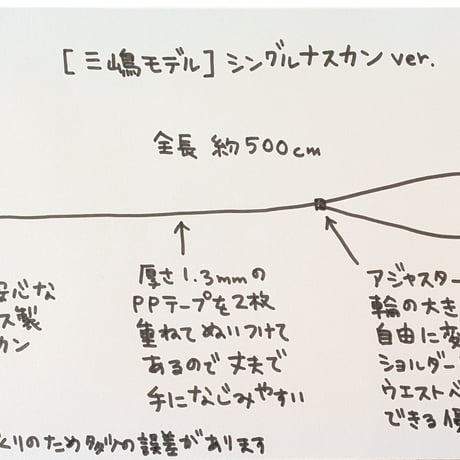 [三嶋モデル]シングルナスカン ver.
全長 約500cm
安心な
ス製
カン
厚さ1.3mmの
PPテープを2枚
重ねてぬいつけて
あるので丈夫で
手になじみやすい
アジャスター
輪の大き
自由に変
ショルダー
ウエストベ
できる優
くりのため多少の誤差があります